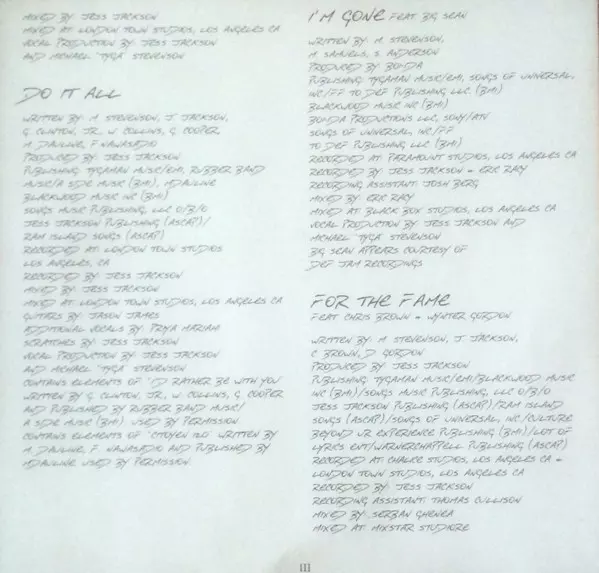 MIXED BY: JESS JACKSON
MIXED AT: LONDON TOWN STUDIOS, LOS ANGELES CA
VOCAL PRODUCTION BY: JESS JACKSON
AND MICHAEL "TYGA" STEVENSON
DO IT ALL
WRITTEN BY: M. STEVENSON, J. JACKSON,
G. CLINTON, JR., W. COLLINS, G. COOPER
M. DAULINE, F. NAWASADIO
PRODUCED BY: JESS JACKSON
PUBLISHING: TYGAMAN MUSIC/EMI, RUBBER BAND
MUSIC/A SIDE MUSIC (BMI), MDAULINE
BLACKWOOD MUSIC INC (BMI)
SONGS MUSIC PUBLISHING, LLC O/B/O
JESS JACKSON PUBLISHING (ASCAP)/
RAM ISLAND SONGS (ASCAP)
RECORDED AT: LONDON TOWN STUDIOS
LOS ANGELES, CA
RECORDED BY: JESS JACKSON
MIXED BY: JESS JACKSON
MIXED AT: LONDON TOWN STUDIOS, LOS ANGELES CA
GUITARS BY: JASON JAMES
ADDITIONAL VOCALS BY: PRIYA MARIAM
SCRATCHES BY: JESS JACKSON
VOCAL PRODUCTION BY: JESS JACKSON
AND MICHAEL "TYGA" STEVENSON
CONTAINS ELEMENTS OF "I'D RATHER BE WITH YOU"
WRITTEN BY G. CLINTON, JR., W. COLLINS, G. COOPER
AND PUBLISHED BY RUBBER BAND MUSIC/
A SIDE MUSIC (BMI). USED BY PERMISSION.
CONTAINS ELEMENTS OF "CITOYEN 120" WRITTEN BY
M. DAULINE, F. NAWASADIO AND PUBLISHED BY
MDAULINE. USED BY PERMISSION.
I'M GONE FEAT. BIG SEAN
WRITTEN BY: M. STEVENSON,
M. SAMUELS, S. ANDERSON
PRODUCED BY: BOI-1DA
PUBLISHING: TYGAMAN MUSIC/EMI, SONGS OF UNIVERSAL,
INC/FF TO DEF PUBLISHING, LLC (BMI)
BLACKWOOD MUSIC INC (BMI)
BOI-1DA PRODUCTIONS LLC, SONY/ATV
SONGS OF UNIVERSAL, INC/FF
TO DEF PUBLISHING, LLC (BMI)
RECORDED AT: PARAMOUNT STUDIOS, LOS ANGELES CA
RECORDED BY: JESS JACKSON + ERIC RACY
RECORDING ASSISTANT: JOSH BERG
MIXED BY: ERIC RACY
MIXED AT: BLACK BOX STUDIOS, LOS ANGELES CA
VOCAL PRODUCTION BY: JESS JACKSON AND
MICHAEL "TYGA" STEVENSON
BIG SEAN APPEARS COURTESY OF
DEF JAM RECORDINGS
FOR THE FAME
FEAT CHRIS BROWN + WYNTER GORDON
WRITTEN BY: M. STEVENSON, J. JACKSON,
C. BROWN, D. GORDON
PRODUCED BY: JESS JACKSON
PUBLISHING: TYGAMAN MUSIC/EMI/BLACKWOOD MUSIC
INC (BMI)/SONGS MUSIC PUBLISHING, LLC O/B/O
JESS JACKSON PUBLISHING (ASCAP)/RAM ISLAND
SONGS (ASCAP)/SONGS OF UNIVERSAL, INC/CULTURE
BEYOND UR EXPERIENCE PUBLISHING (BMI)/LOT OF
LYRICS ENT/WARNERCHAPPELL PUBLISHING (ASCAP)
RECORDED AT: CHALICE STUDIOS, LOS ANGELES CA +
LONDON TOWN STUDIOS, LOS ANGELES CA
RECORDED BY: JESS JACKSON
RECORDING ASSISTANT: THOMAS CULLISON
MIXED BY: SERBAN GHENEA
MIXED AT: MIXSTAR STUDIORE
III